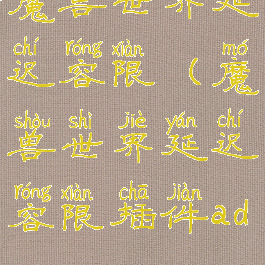 魔兽世界延
chí róng xiàn mó
迟容限（魔
shòu shì jiè yán chí
兽世界延迟
róng xiàn chā jiàn
容限插件ad